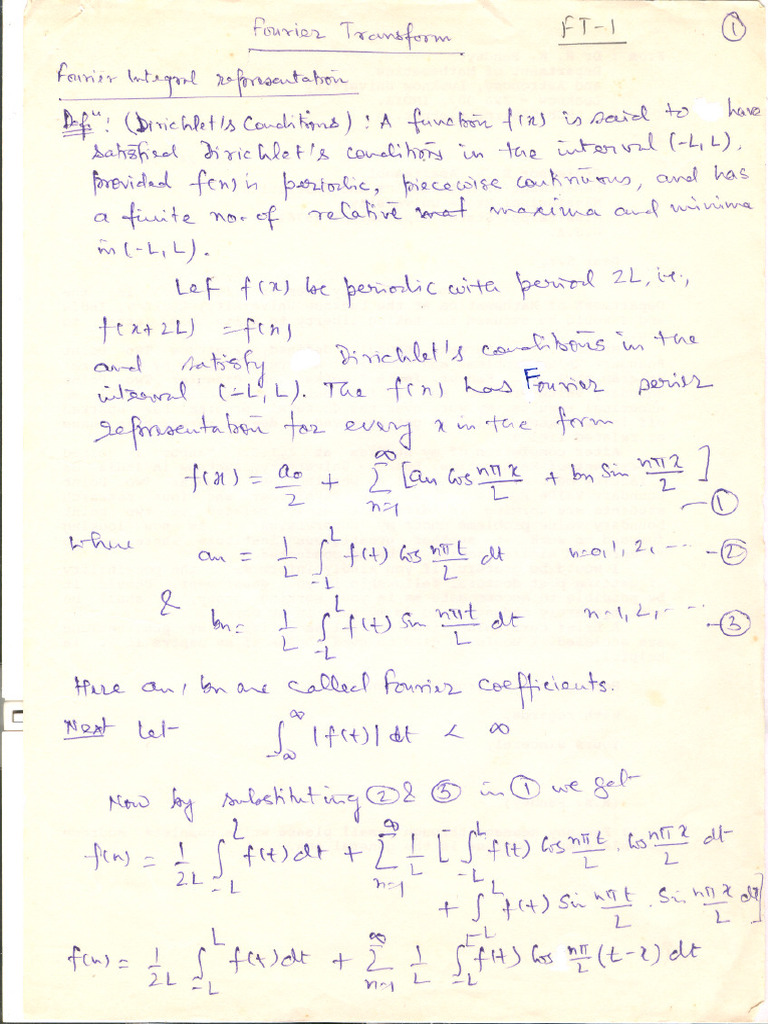 Fourier Transform FT-1 ①
Fourier Integral representation
Defn: (Dirichlet's Conditions): A function f(x) is said to have
satisfied Dirichlet's conditions in the interval (-L, L),
provided f(x) is periodic, piecewise continuous, and has
a finite no. of relative maxima and minima
in (-L, L).
Let f(x) be periodic with period 2L, i.e.,
f(x+2L) = f(x)
and satisfy Dirichlet's conditions in the
interval (-L, L). The f(x) has Fourier series
representation for every x in the form
f(x) = a₀/2 + ∑_{n=1}^{∞} [an Cos nπx/L + bn Sin nπx/L] —①
where an = 1/L ∫_{-L}^{L} f(t) Cos nπt/L dt n=0,1,2,--- —②
& bn = 1/L ∫_{-L}^{L} f(t) Sin nπt/L dt n=1,2,--- —③
Here an, bn are called Fourier coefficients.
Next Let ∫_{-∞}^{∞} |f(t)| dt < ∞
Now by substituting ② & ③ in ① we get
f(x) = 1/2L ∫_{-L}^{L} f(t) dt + ∑_{n=1}^{∞} 1/L [∫_{-L}^{L} f(t) Cos nπt/L . Cos nπx/L dt
+ ∫_{-L}^{L} f(t) Sin nπt/L . Sin nπx/L dt]
f(x) = 1/2L ∫_{-L}^{L} f(t) dt + ∑_{n=1}^{∞} 1/L ∫_{-L}^{L} f(t) Cos nπ/L (t-x) dt